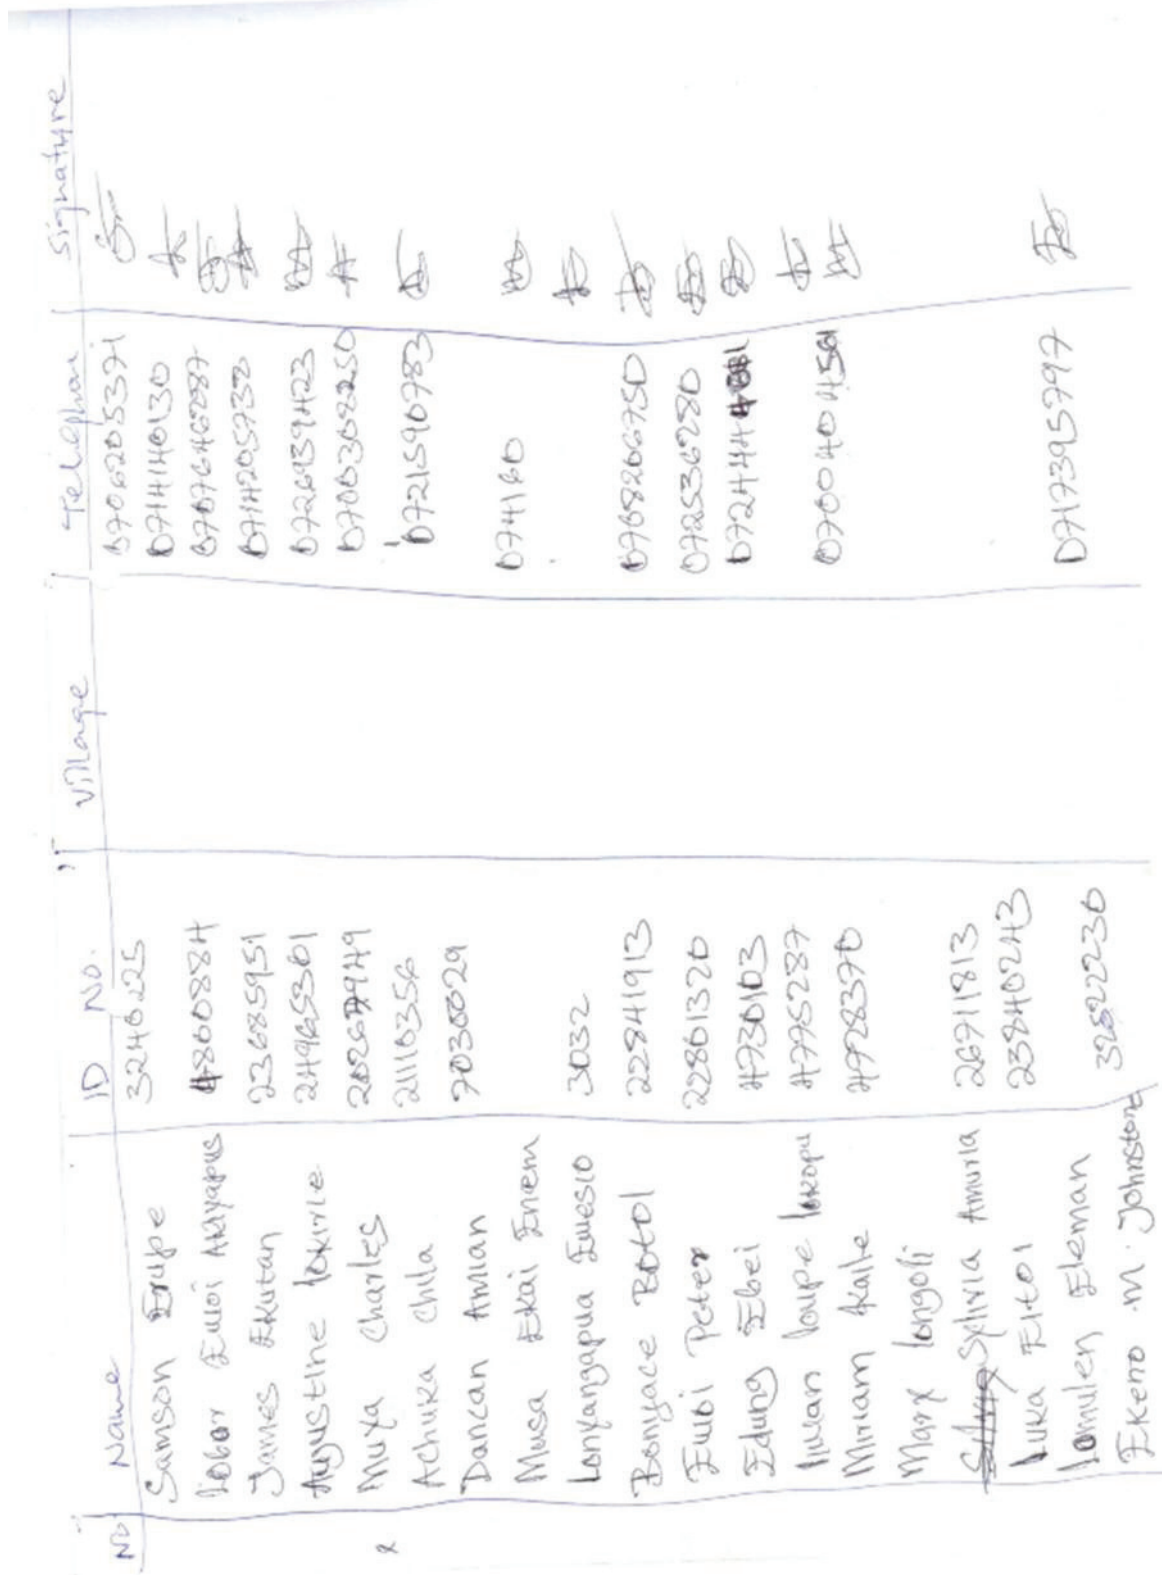 No Name ID No. Village Telephon Signature
Samson Erupe 3240225 0706205371
Lobor Ewoi Akiyapus 48600884 0714140130
James Ekutan 23685951 0707646287
Augustine Lokirie 24965301 0714205732
Muya Charles 20267949 0726939423
Achuka Chila 21110356 0700308250
Dancan Amian 7030029 0721590783
Musa Ekai Enrem 074160
Lonyangapua Ewesio 3032
Bonyace Botol 22841913 0768206750
Ewoi Peter 22801320 0725536280
Edung Ebei 4730103
Loupe Lokopu 47752287
Miriam Kaile 4728370 0700404561
Mary Longoli
Sylivia Amuria 26711813
Luka Eltoi 23840243
Lomulen Eleman
Ekeno M. Johnstone 32522230 0717395797